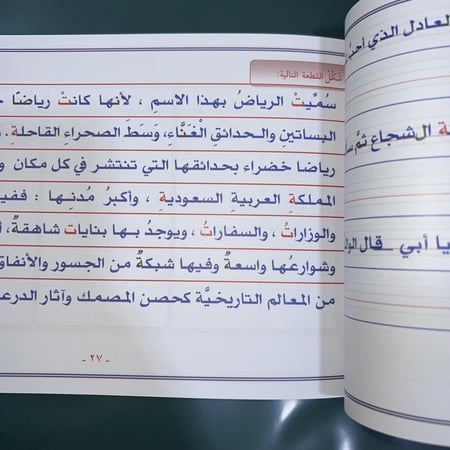 لعادل الذي أحب
ة الشجاع ثمَّ
يا أبي _ قال
شكّل القطعة التالية:
سُمِّيتْ الرياضُ بهذا الاسمِ ، لأنها كانتْ رياضًا
البساتينِ والحدائقِ الْغَنَّاءِ، وَسَطَ الصحراءِ القاحلةِ .
رياضا خضراء بحدائقها التي تنتشر في كل مكان
المملكةِ العربيةِ السعوديةِ ، وأكبرُ مُدنِها : ففيـ
والوزاراتُ ، والسفاراتُ ، ويوجدُ بها بناياتٌ شاهقةٌ،
وشوارعُها واسعةٌ وفيها شبكةٌ من الجسور والأنفاق
من المعالم التاريخيَّة كحصن المصمك وآثار الدرعـ
- ٢٧ -